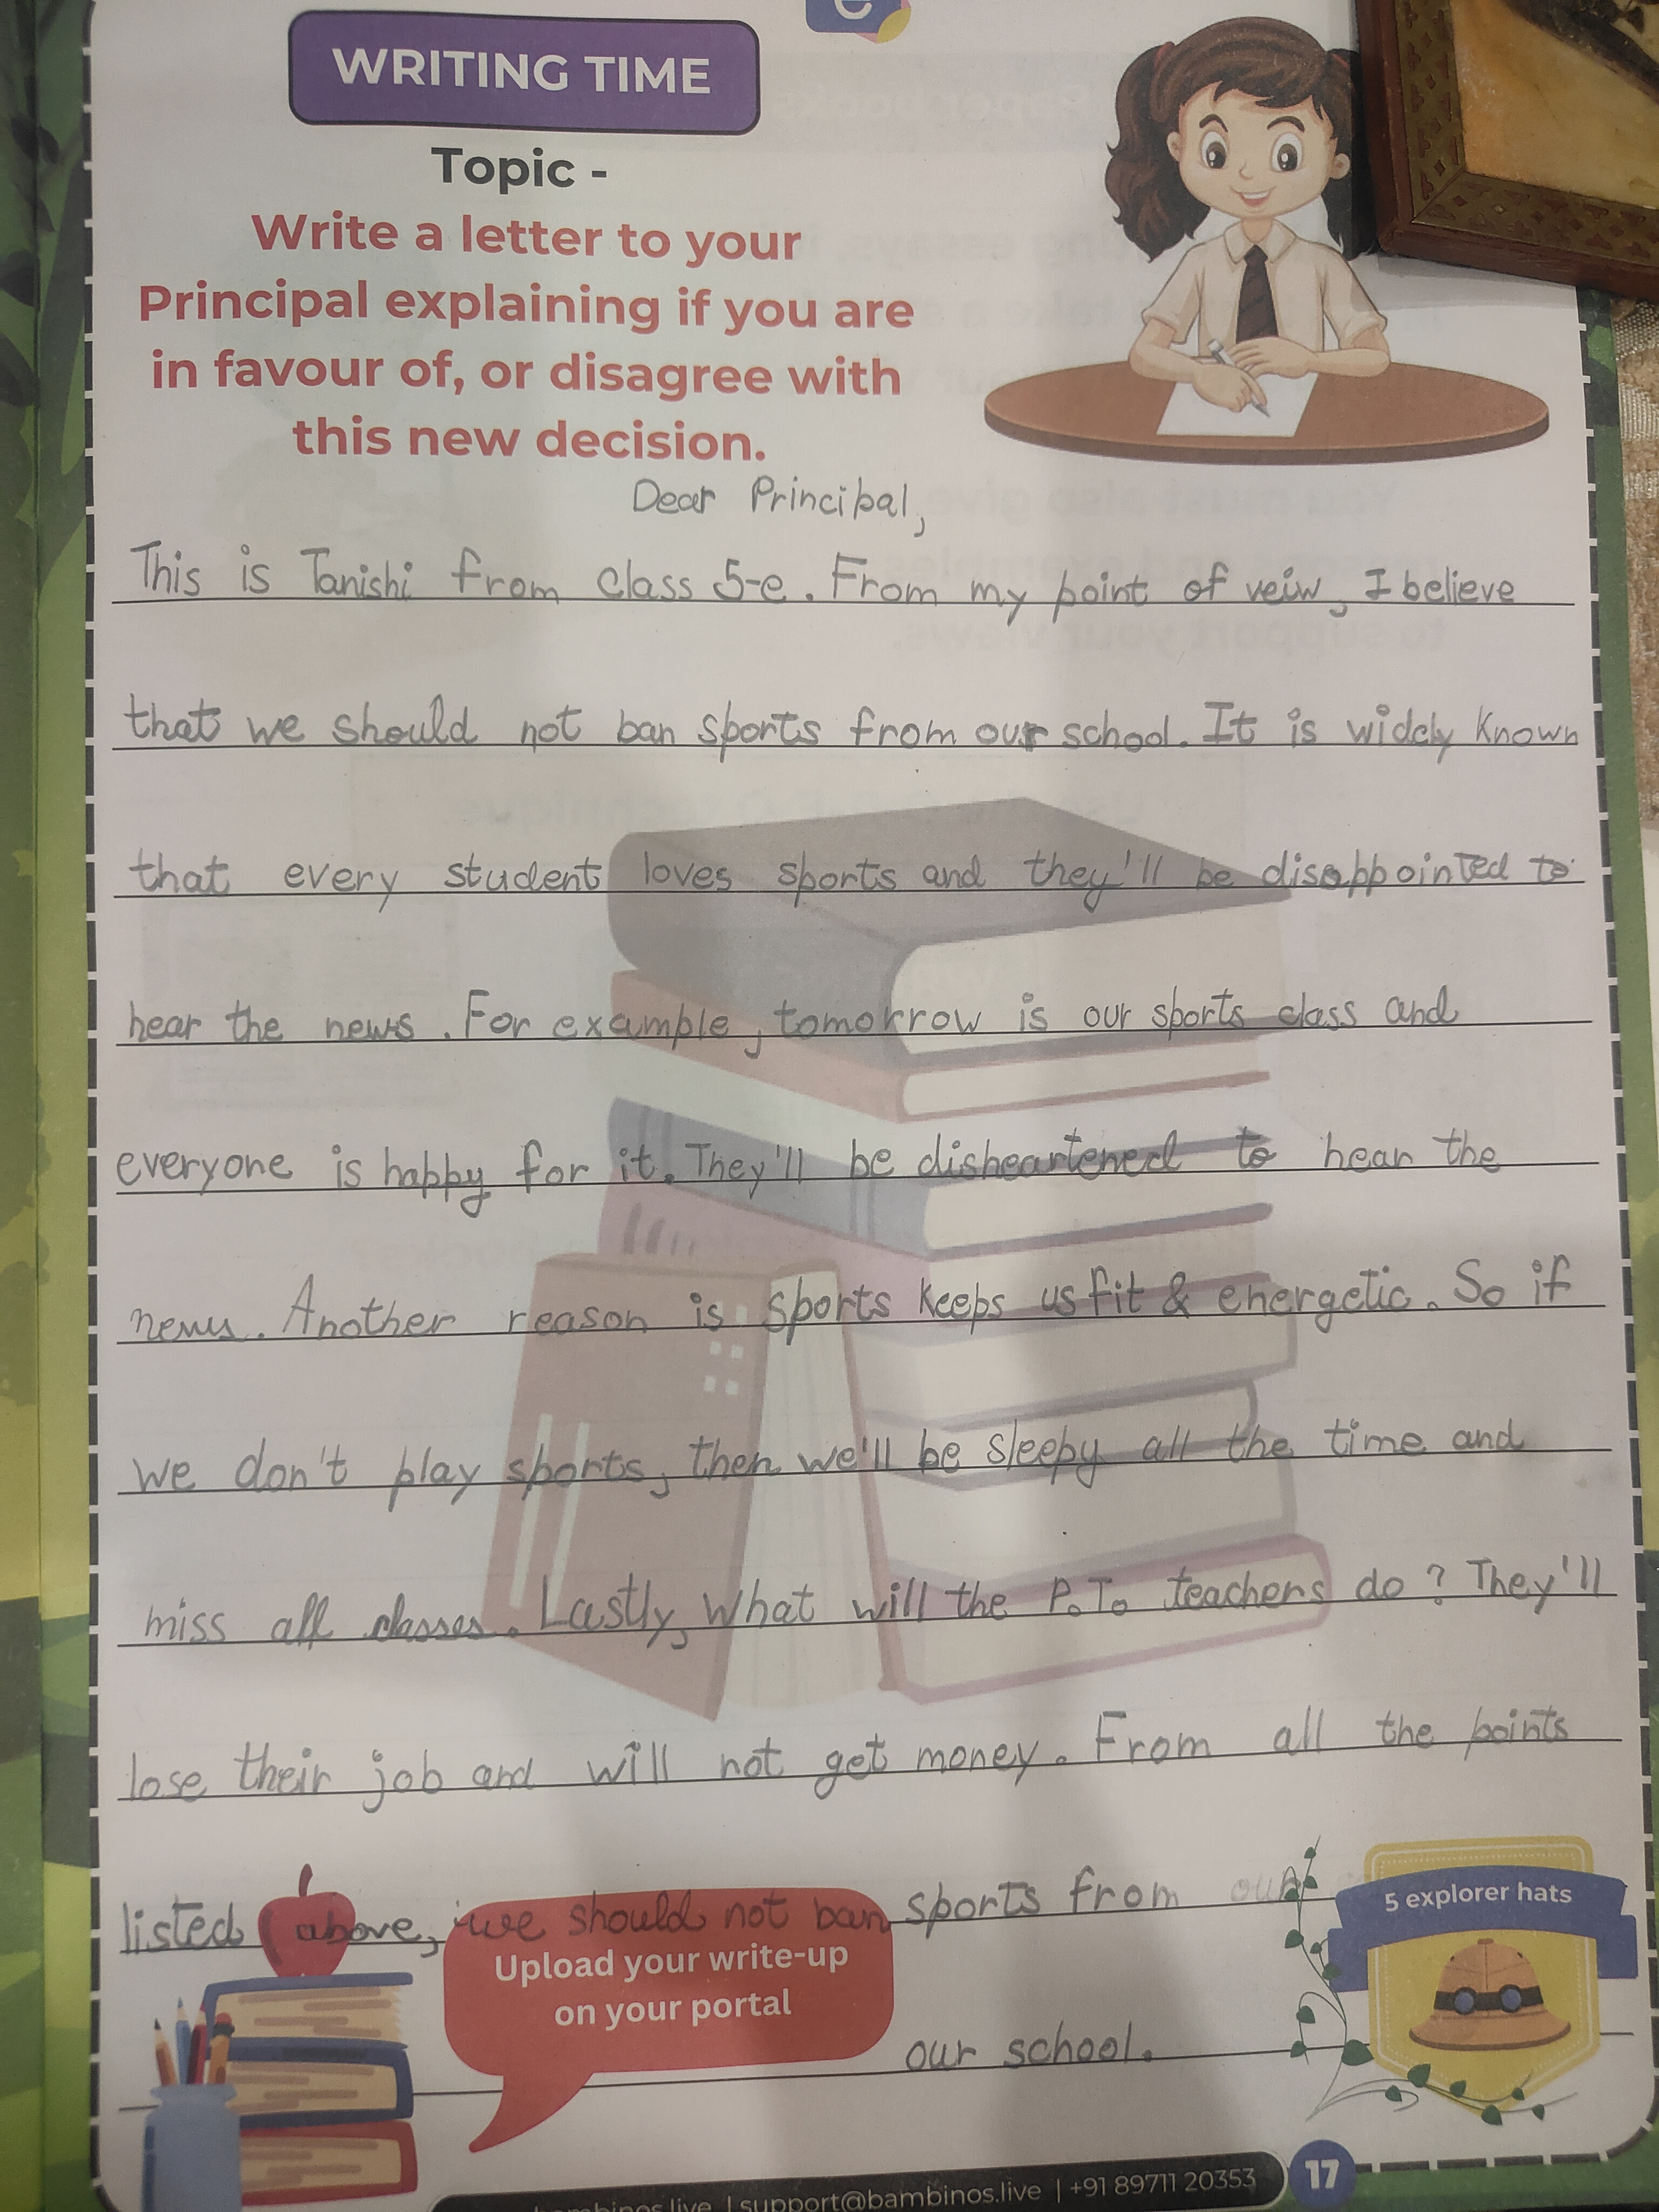 WRITING TIME
Topic -
Write a letter to your
Principal explaining if you are
in favour of, or disagree with
this new decision.
Dear Principal,
This is Tanishi from class 5-e. From my point of veiw, I believe
that we should not ban sports from our school. It is widely known
that every student loves sports and they'll be disappointed to
hear the news. For example, tomorrow is our sports class and
everyone is happy for it. They'll be disheartened to hear the
news. Another reason is sports keeps us fit & energetic. So if
we don't play sports, then we'll be sleepy all the time and
miss all classes. Lastly, what will the P.T. teachers do? They'll
lose their job and will not get money. From all the points
listed above, we should not ban sports from our
our school.
5 explorer hats
Upload your write-up
on your portal
bambinos.live | support@bambinos.live | +91 89711 20353
17